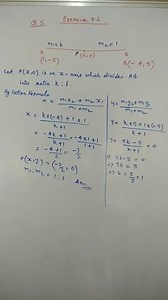 Q.5 Exercise 7.2
m₁=k m₂=1
A(1,-5) P(x,0) B(-4,5)
Let P(x,0) is on x-axis which divides AB
into ratio k:1
By section Formula
x = m₁x₂ + m₂x₁ / m₁+m₂
x = k×(-4) + 1×1 / k+1
= -4k+1 / k+1 = -4×1+1 / 1+1
= -4+1 / 2 = -3/2
P(x,y) = (-3/2, 0)
m₁:m₂ = 1:1 Ans
y = m₁y₂+m₂y₁ / m₁+m₂
y = k×5+1×(-5) / k+1
0 = 5k-5 / k+1
⇒ 5k-5 = 0
⇒ 5k = 5
⇒ k = 5/5 = 1